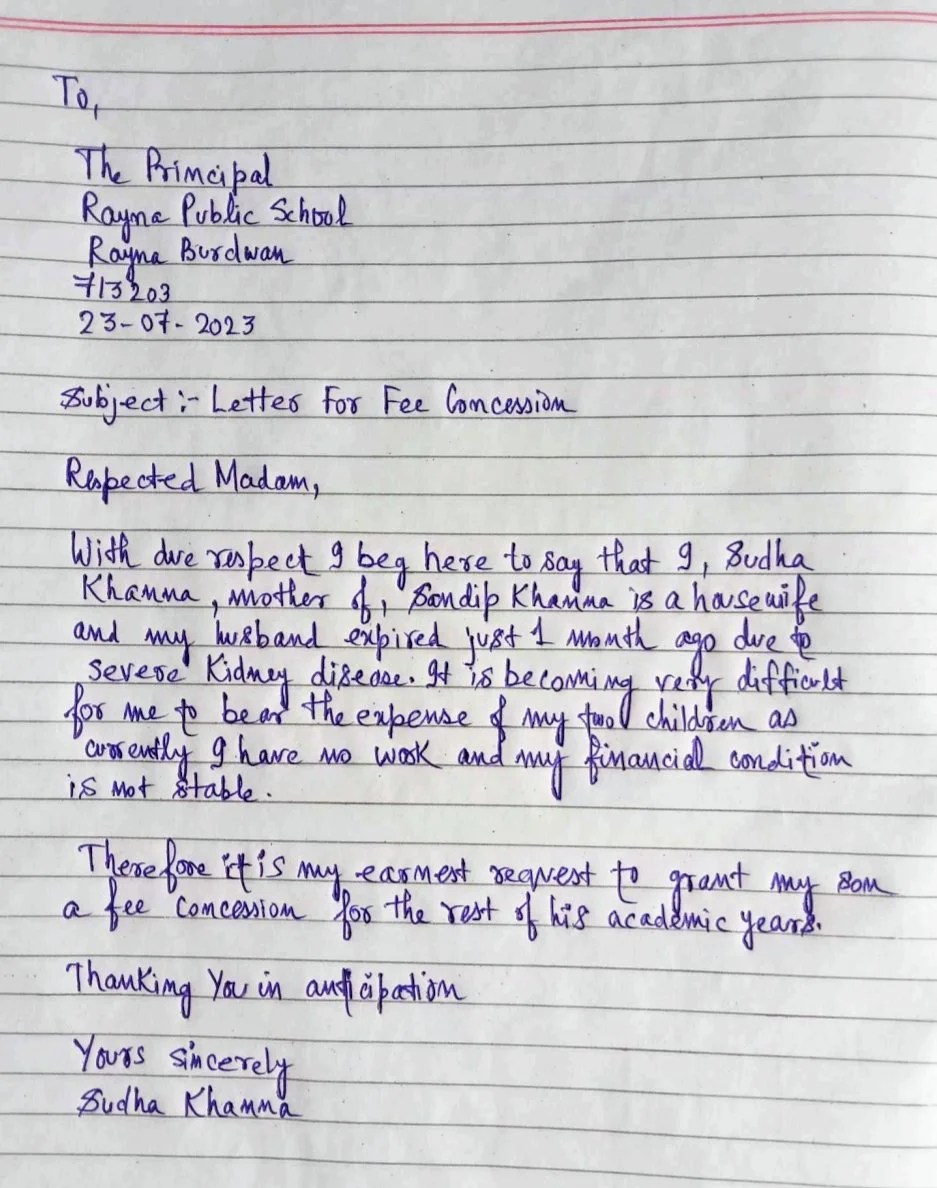 To,
The Principal
Rayna Public School
Rayna Burdwan
713203
23-07-2023
Subject :- Letter For Fee Concession
Respected Madam,
With due respect I beg here to say that I, Sudha
Khanna, mother of, Sandip Khanna is a housewife
and my husband expired just 1 month ago due to
severe Kidney disease. It is becoming very difficult
for me to bear the expense of my two children as
currently I have no work and my financial condition
is not stable.
Therefore it is my earnest request to grant my son
a fee concession for the rest of his academic years.
Thanking You in anticipation
Yours sincerely
Sudha Khanna